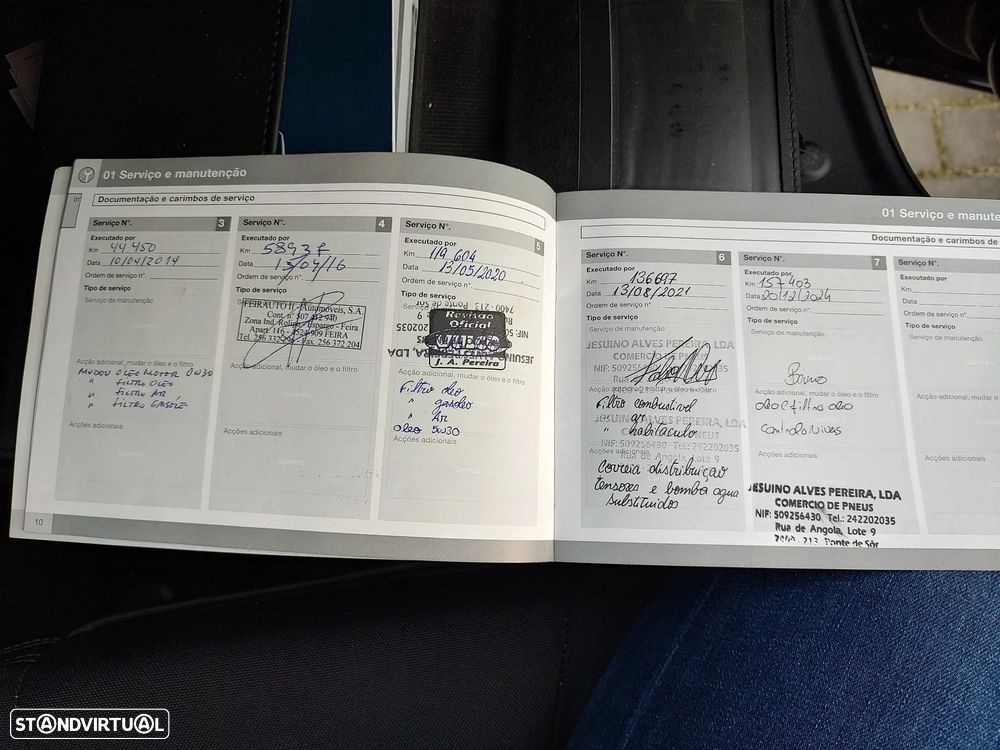 01 Serviço e manutenção
01
Documentação e carimbos de serviço
Serviço N°. 3
Executado por
Km 44 450
Data 10/04/2014
Ordem de serviço n°.
Tipo de serviço
Serviço de manutenção
Acção adicional, mudar o óleo e o filtro
MUDOU OLEO MOTOR 0W30
" FILTRO OLEO
" FILTRO AR
" FILTRO GASOLE
Acções adicionais
10
Serviço N°. 4
Executado por
Km
Data
Ordem de serviço n°.
Tipo de serviço
FEIRAUTO II - Automóveis, S.A.
Zona Ind. Roligo - Espargo - Feira
Apart. 116 - 4524-909 FEIRA
Fax. 256 372 204
Acção adicional, mudar o óleo e o filtro
Carimbo
Acções adicionais
Carimbo
Serviço N°. 5
Executado por
Km 119 604
Data 13/05/2020
Ordem de serviço n°.
Tipo de serviço
7400 - 213 Ponte de Sôr
Revisão
Oficial
J. A. Pereira
Acção adicional, mudar o óleo e o filtro
Filtro óleo
" gasoleo
" AR
oleo 5w30
Acções adicionais
Carimbo
01 Serviço e manute
Documentação e carimbos de
Serviço N°. 6
Executado por
Km 136697
Data 13/08/2021
Ordem de serviço n°.
Tipo de serviço
Serviço de manutenção
JESUINO ALVES PEREIRA, LDA
COMERCIO DE PNEUS
Acção adicional, mudar o óleo e o filtro
Filtro combustivel
" ar
" habitaculo
JESUINO ALVES PEREIRA, LDA
NIF: 509256430 Tel.: 242202035
Rua de Angola, Lote 9
Acções adicionais
Correia distribuiçao
tensores e bomba agua
substituidos
Serviço N°. 7
Executado por
Km 157403
Data 20/12/2024
Ordem de serviço n°.
Tipo de serviço
Serviço de manutenção
Acção adicional, mudar o óleo e o filtro
oleo e filtro oleo
Acções adicionais
JESUINO ALVES PEREIRA, LDA
COMERCIO DE PNEUS
NIF: 509256430 Tel.: 242202035
Rua de Angola, Lote 9
7400 - 213 Ponte de Sôr
Serviço N°.
Executado por
Km
Data
Ordem de serviço n°.
Tipo de serviço
Serviço de manutenção
Acção adicional, m
Acções adicionais
STANDVIRTUAL